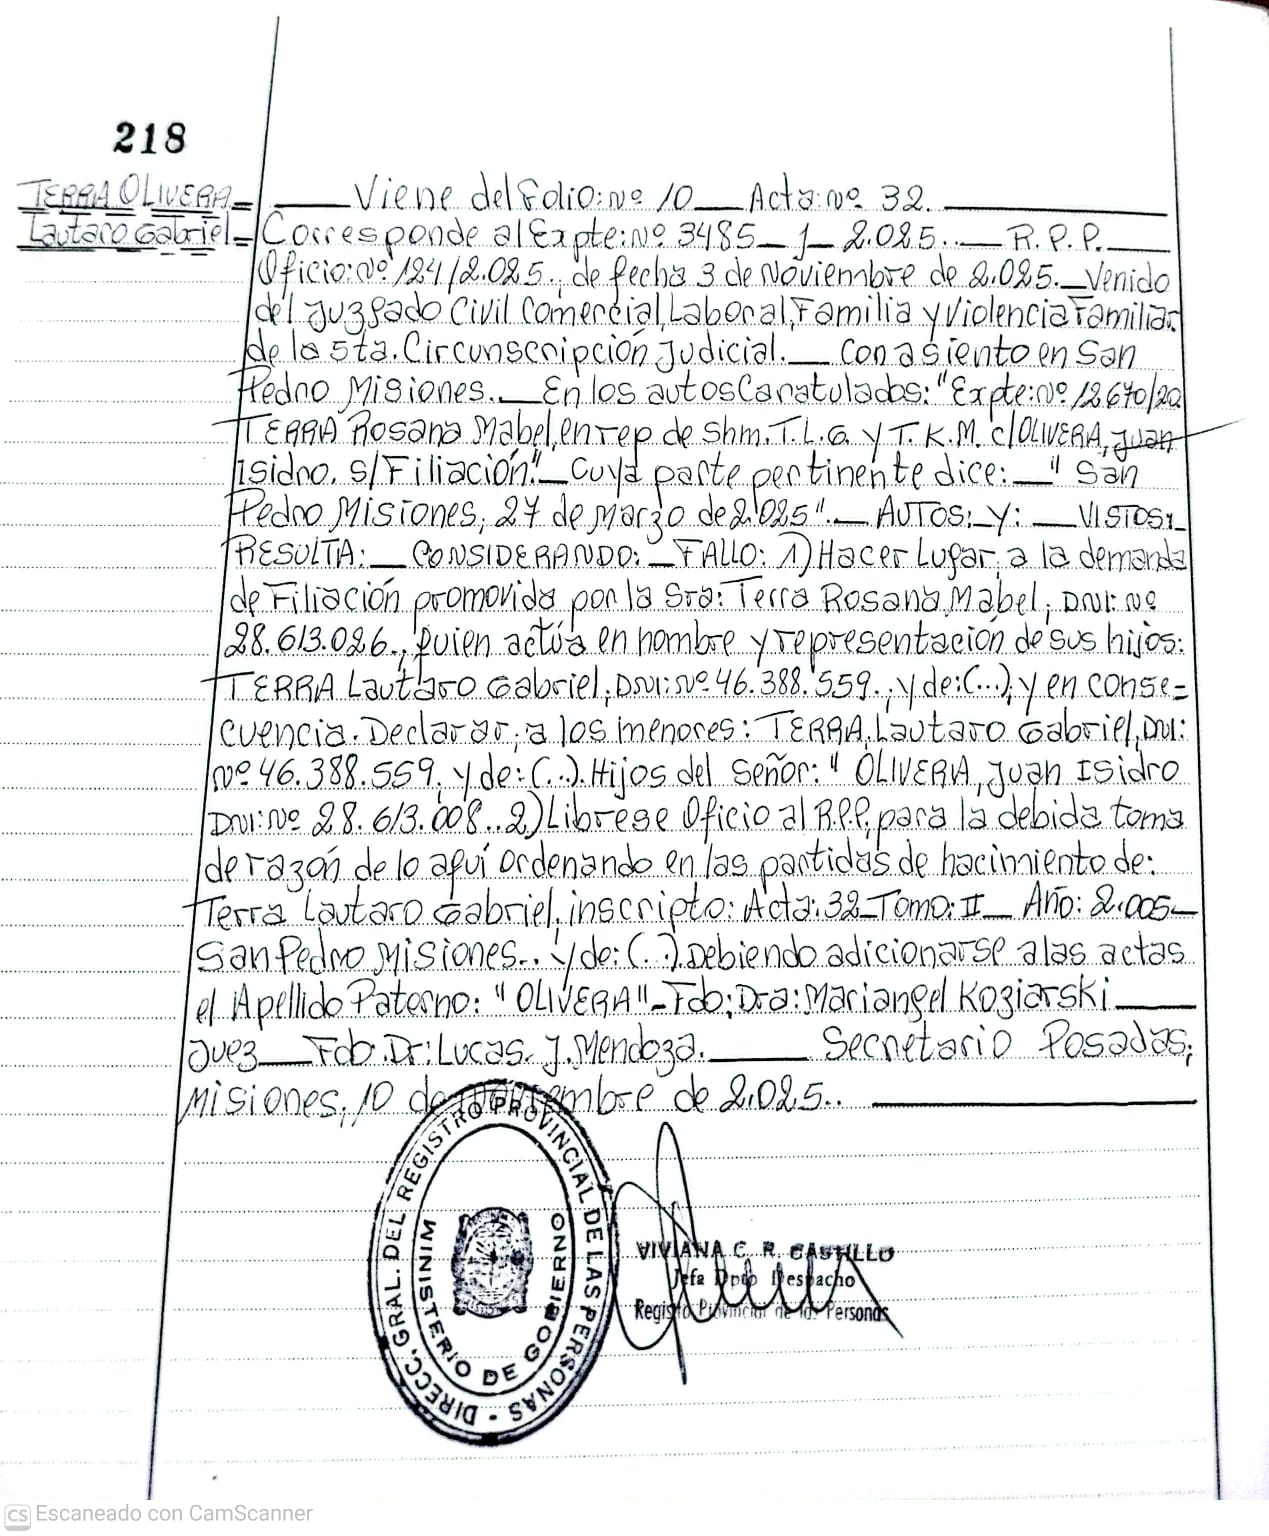 218
TERRA OLIVERA
Lautaro Gabriel
Viene del Folio: Nº 10 Acta: Nº 32.
Corresponde al Expte: Nº 3485 - J - 2.025. R.P.P.
Oficio: Nº 124/2.025., de fecha 3 de Noviembre de 2.025. Venido
del Juzgado Civil Comercial, Laboral, Familia y Violencia Familiar
de la 5ta. Circunscripción Judicial. Con asiento en San
Pedro Misiones. En los autos Caratulados: "Expte: Nº 12.670/20
TERRA Rosana Mabel, en rep de Shm. T.L.G. y T.K.M. c/OLIVERA, Juan
Isidro. s/Filiación". Cuya parte pertinente dice: "San
Pedro Misiones, 27 de Marzo de 2.025". AUTOS: Y: VISTOS:
RESULTA: CONSIDERANDO: FALLO: 1) Hacer Lugar, a la demanda
de Filiación promovida por la Sra: Terra Rosana Mabel, DNI: Nº
28.613.026., quien actúa en nombre y representación de sus hijos:
TERRA Lautaro Gabriel, DNI: Nº 46.388.559., y de: (...), y en conse=
cuencia. Declarar, a los menores: TERRA, Lautaro Gabriel, DNI:
Nº 46.388.559. y de: (...). Hijos del Señor: " OLIVERA, Juan Isidro
DNI: Nº 28.613.008.. 2) Librese Oficio al R.P.P, para la debida toma
de razón de lo aquí ordenando en las partidas de nacimiento de:
Terra Lautaro Gabriel, inscripto: Acta: 32 - Tomo: II - Año: 2.005 -
San Pedro Misiones.. y de: (...). Debiendo adicionarse a las actas
el Apellido Paterno: "OLIVERA" - Fdo; Dra: Mariangel Koziarski
Juez Fdo. Dr: Lucas. J. Mendoza. Secretario Posadas,
Misiones, 10 de Noviembre de 2.025..
DIRECC. GRAL. DEL REGISTRO PROVINCIAL DE LAS PERSONAS -
MINISTERIO DE GOBIERNO
VIVIANA C. R. CASTILLO
Jefa Dpto Despacho
Registro Provincial de las Personas
CS Escaneado con CamScanner